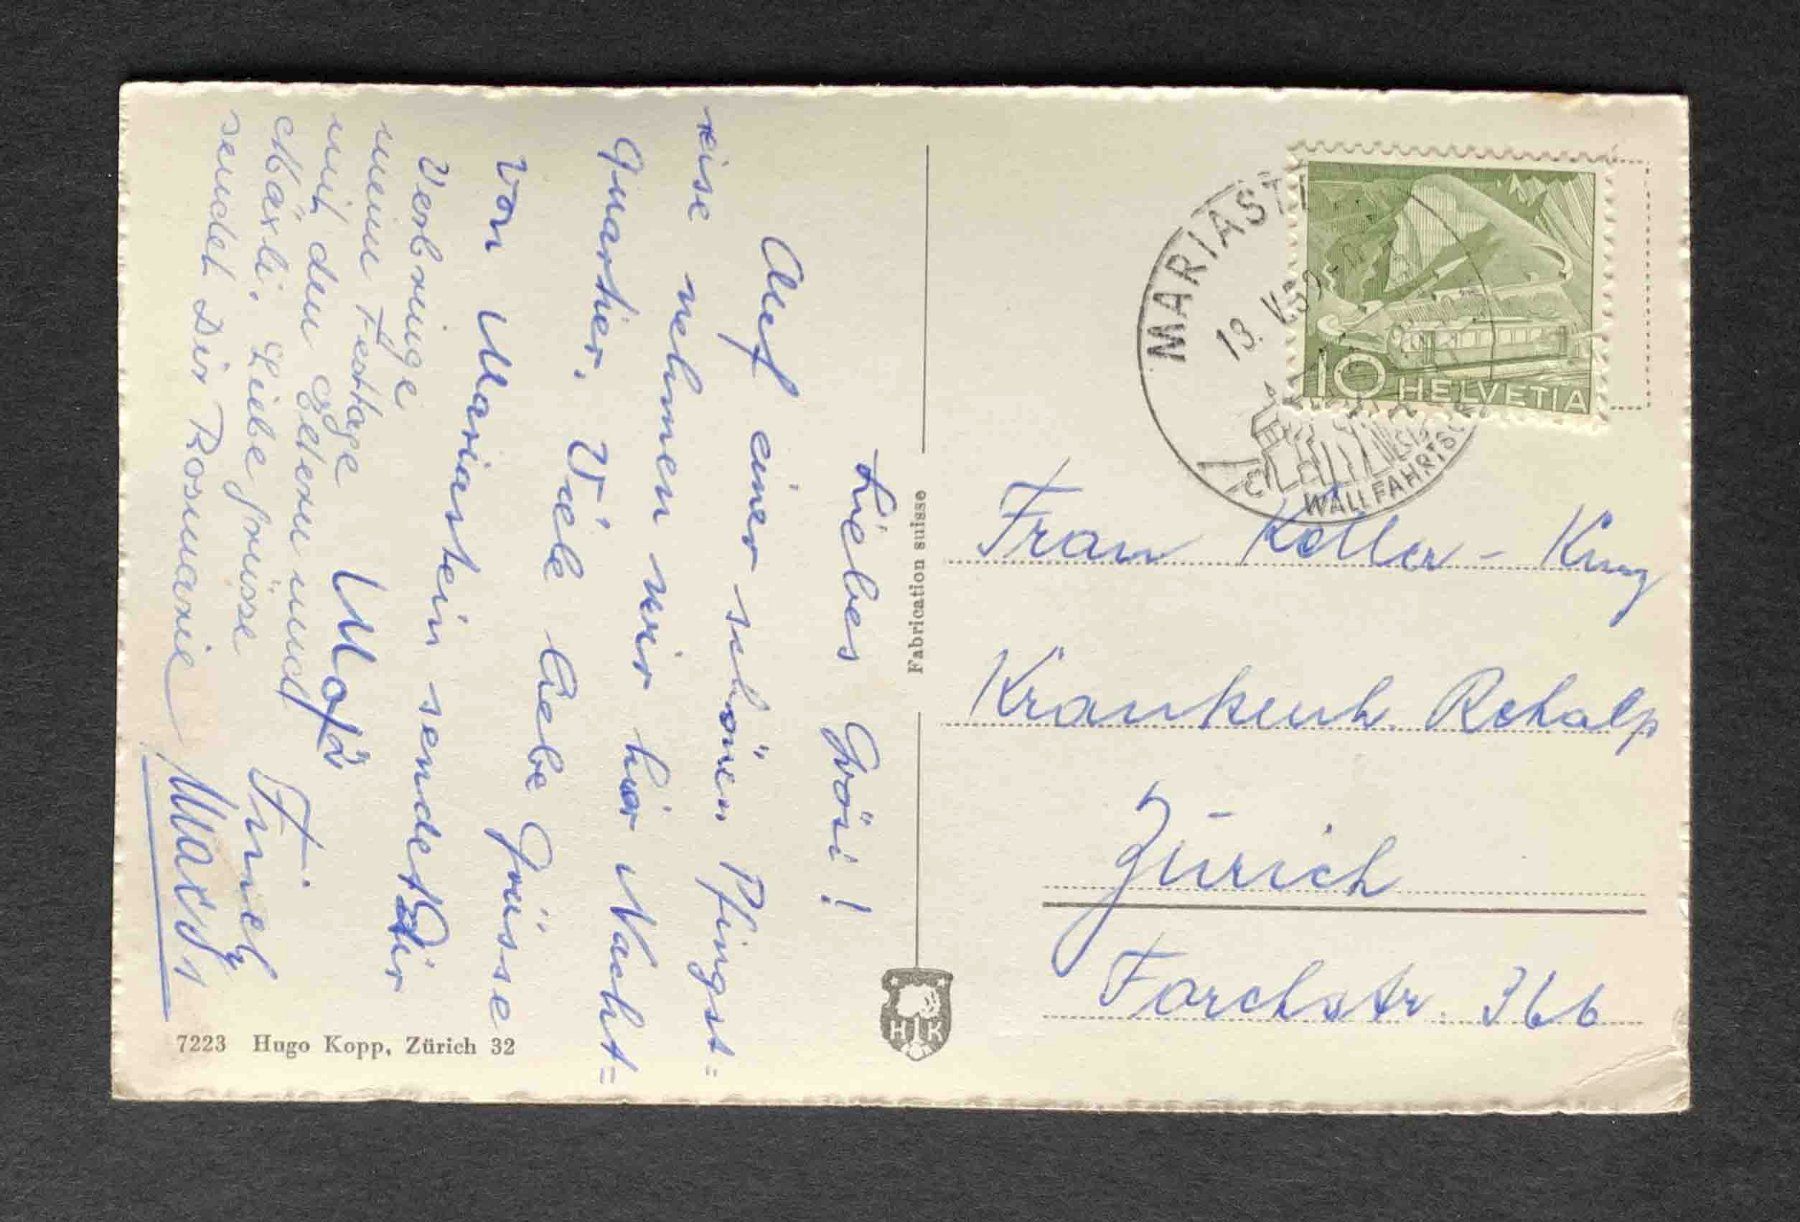 Liebes Grösi!
Auf einer schönen Pfingst=
reise nehmen wir hier Nacht=
quartier. Viele liebe Grüsse
von Mariastein sendet Dir
Verbringe
meine Festtage
mit den Eltern und
Märli. Liebe Grüsse
sendet Dir Rosmarie
7223 Hugo Kopp, Zürich 32
Fabrication suisse
HK
13. V.
WALLFAHRTS
10 HELVETIA
Frau Koller - Kung
Krankenh. Rehalp
Zürich
Forchstr. 366